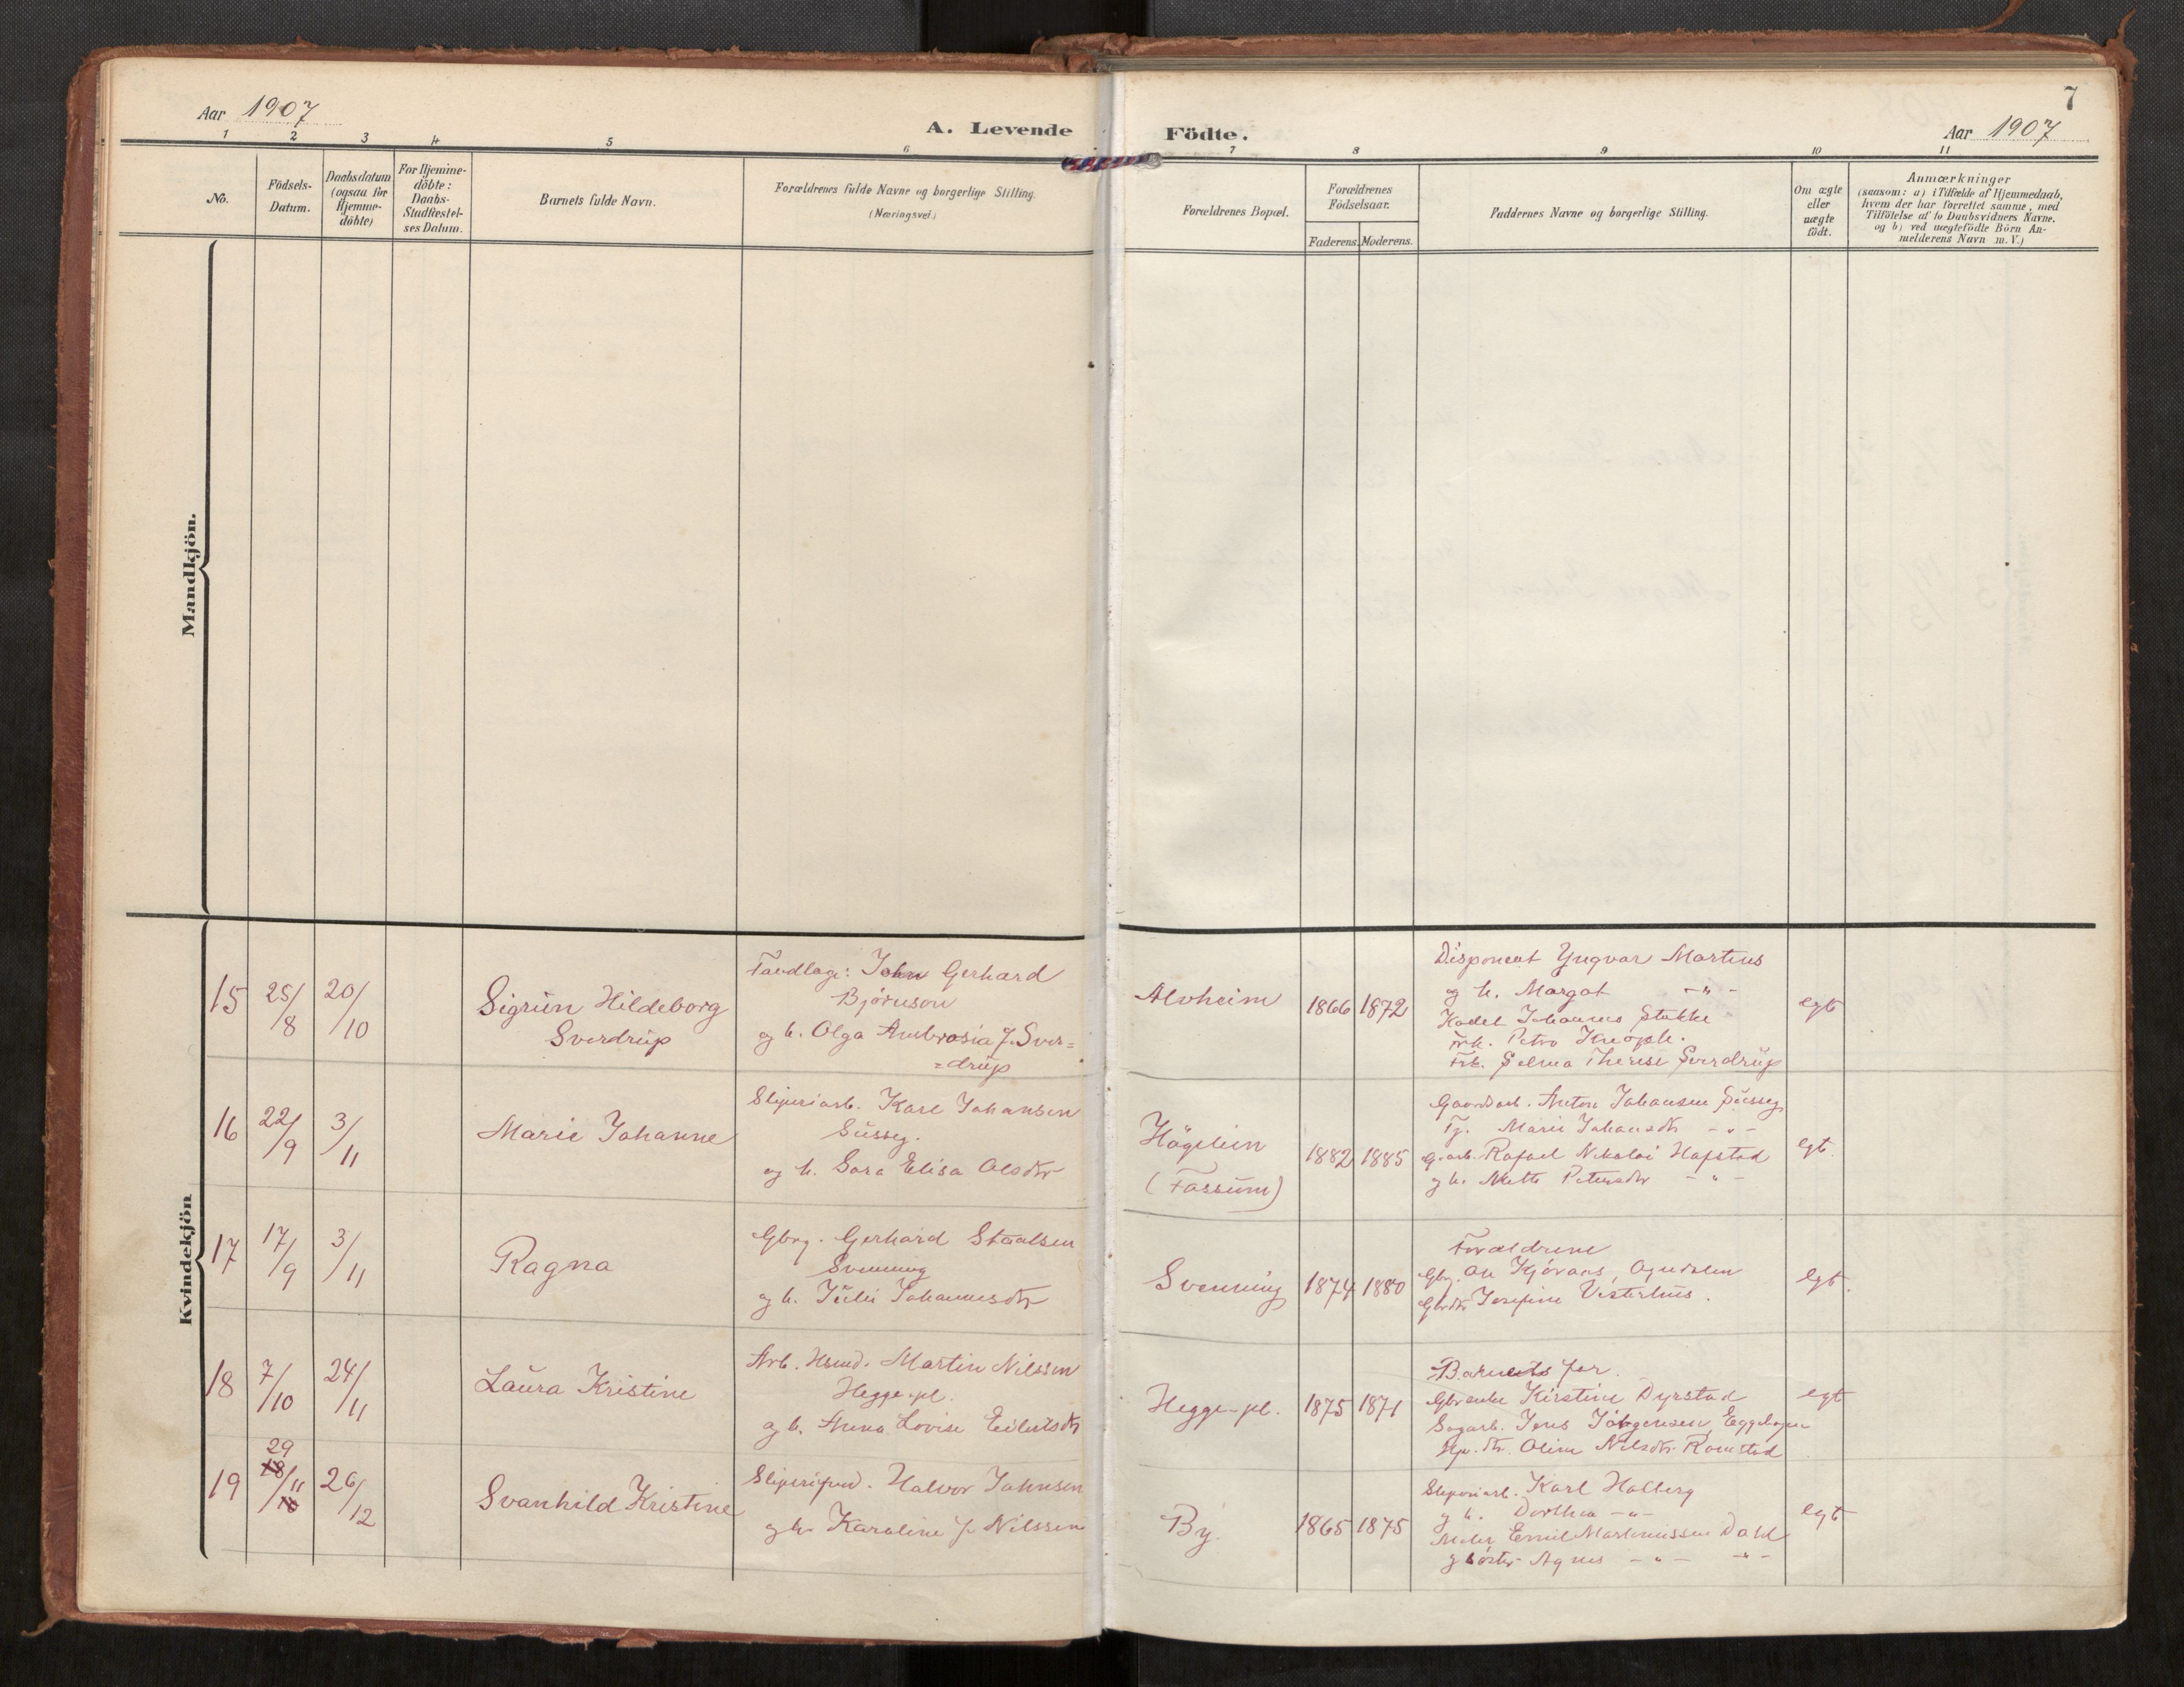 Aar 1907
A. Levende
Födte.
7
Aar 1907
1 2 3 4 5 6 7 8 9 10 11
No.
Födsels-
Datum.
Daabsdatum
(ogsaa for
Hjemme-
döbte)
For Hjemme-
döbte:
Daabs-
Stadfæstel-
ses Datum.
Barnets fulde Navn.
Forældrenes fulde Navne og borgerlige Stilling.
(Næringsvei.)
Forældrenes Bopæl.
Forældrenes
Födselsaar.
Faderens. Moderens.
Faddernes Navne og borgerlige Stilling.
Om ægte
eller
uægte
födt.
Anmærkninger
(saasom: a) i Tilfælde af Hjemmedaab,
hvem der har forrettet samme, med
Tilföielse af to Daabsvidners Navne,
og b) ved uægtefödte Börn An-
melderens Navn m. V.)
Mandkjön.
Kvindekjön
15 25/8 20/10
Sigrun Hildeborg
Sverdrup
Tandlæge: John Gerhard
Bjørnson
og h. Olga Ambrosia f. Sver=
=drup
Alvheim
1866 1872
Disponent Yngvar Martens
og h. Margot -"-
Kadet Johannes Stokke
Frk. Petra
Frk. Selma Therese Sverdrup
egt
16 22/9 3/11
Marie Johanne
Sliperiarb. Karl Johansen
Süsseg.
og h. Sara Elisa Olsdtr
Högeliin
(Fossum)
1882 1885
Gaardsarb. Anton Johansen Süsseg
Tj. Marie Johansdtr -"-
G.arb. Rafael Nikolai Hafstad
og h. Mette Petersdtr -"-
egt.
17 17/9 3/11
Ragna
Gbrg. Gerhard Staalsen
Svenning
og h. Julie Johannesdtr
Svenning
1874 1880
Forældrene
Gbrg. Ole Kjóraas, Ogndalen
Gbrdtr Josefine Vesterhus.
egt.
18 7/10 24/11
Laura Kristine
Arb. Hsmd. Martin Nilssen
Hegge-pl.
og h. Anna Lovise Eilertsdtr
Hegge-pl.
1875 1871
Barnets far.
Gbrenke Kirstine Dyrstad
Sagarb. Jens Jörgensen, Eggehagen
Hpl. dtr. Oline Nilsdtr. Romstad
egt
19 29 18/11 10 26/12
Svanhild Kristine
Sliperifmd. Halvor Johnsen
og h. Karoline f. Nilssen
By.
1865 1875
Sliperiarb. Karl Halberg
og h. Dorthea -"-
Maler Emil Martinussen Dahl
og söster Agnes -"- -"-
egt